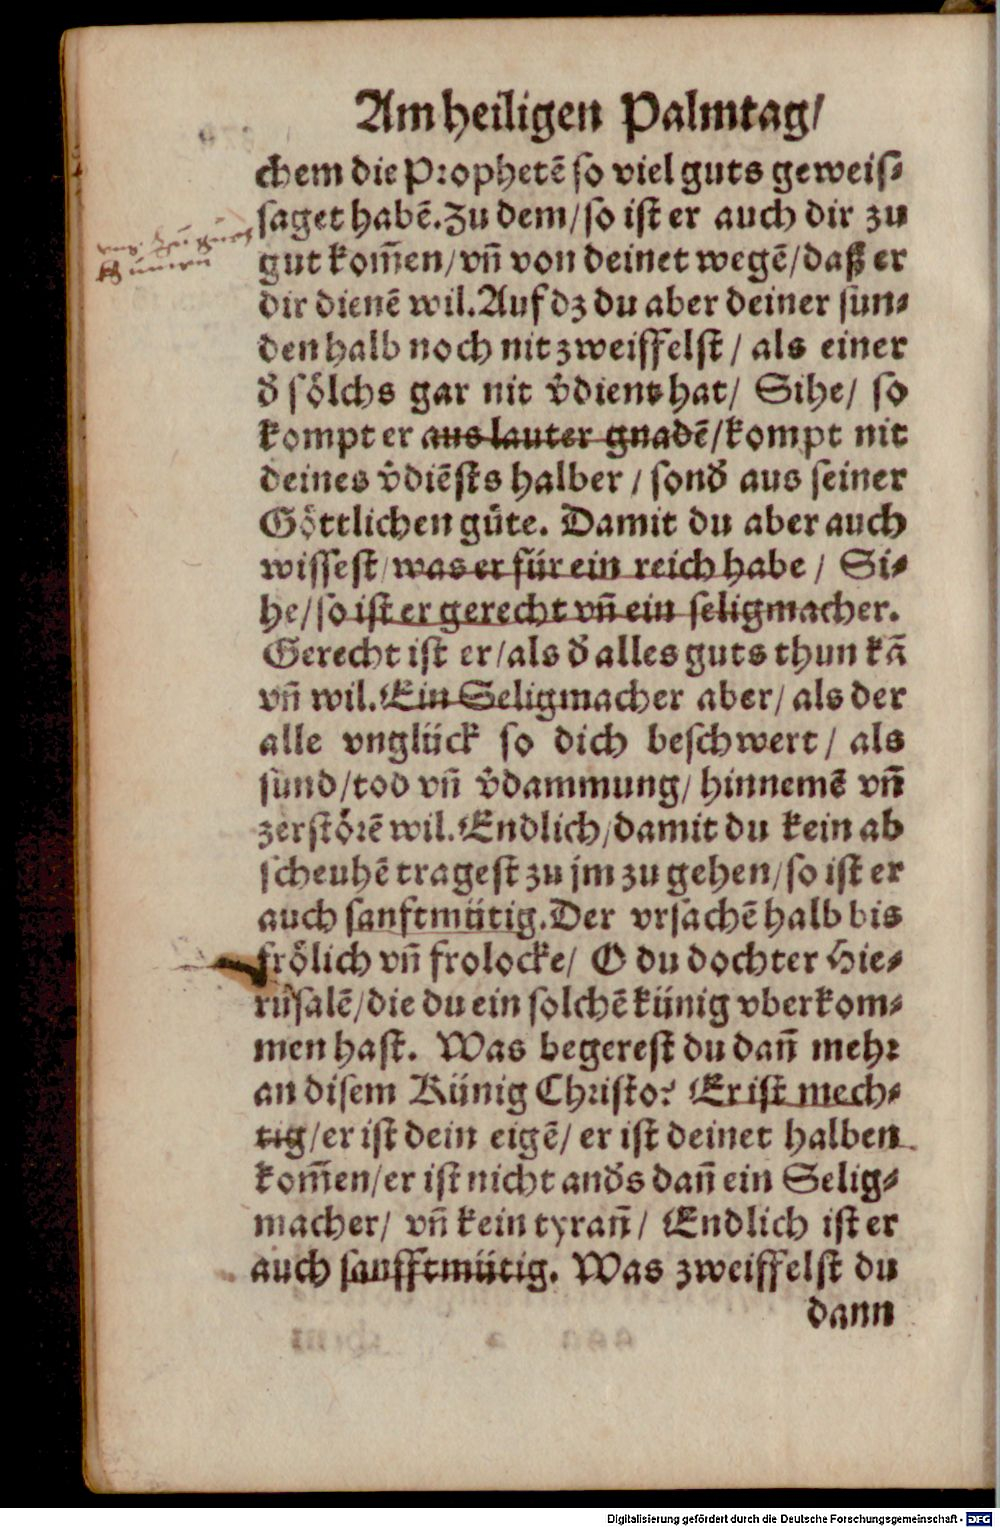 Am heiligen Palmtag/
chem die Prophetẽ so viel guts geweis⸗
saget habẽ. Zu dem/ so ist er auch dir zu
gut kom̃en/ vñ von deinet wegẽ/ daß er
dir dienẽ wil. Auf dz du aber deiner sun⸗
den halb noch nit zweiffelst / als einer
d̕ sölchs gar nit v̕dient hat/ Sihe/ so
kompt er aus lauter gnadẽ/ kompt nit
deines v̕diẽsts halber / sond̕ aus seiner
Göttlichen güte. Damit du aber auch
wissest/ was er für ein reich habe / Si⸗
he/ so ist er gerecht vñ ein seligmacher.
Gerecht ist er/ als d̕ alles guts thun kã
vñ wil. Ein Seligmacher aber/ als der
alle vnglück so dich beschwert/ als
sünd/ tod vñ v̕dammung/ hinnemẽ vñ
zerstörẽ wil. Endlich/ damit du kein ab
scheuhẽ tragest zu jm zu gehen/ so ist er
auch sanftmütig. Der vrsachẽ halb bis
frölich vñ frolocke/ O du dochter Hie⸗
rusalẽ/ die du ein solchẽ künig vberkom⸗
men hast. Was begerest du dañ mehr
an disem Künig Christo? Er ist mech⸗
tig/ er ist dein eigẽ/ er ist deinet halben
kom̃en/ er ist nicht and̕s dañ ein Selig⸗
macher/ vñ kein tyrañ/ Endlich ist er
auch sanfftmütig. Was zweiffelst du
dann
Digitalisierung gefördert durch die Deutsche Forschungsgemeinschaft - DFG